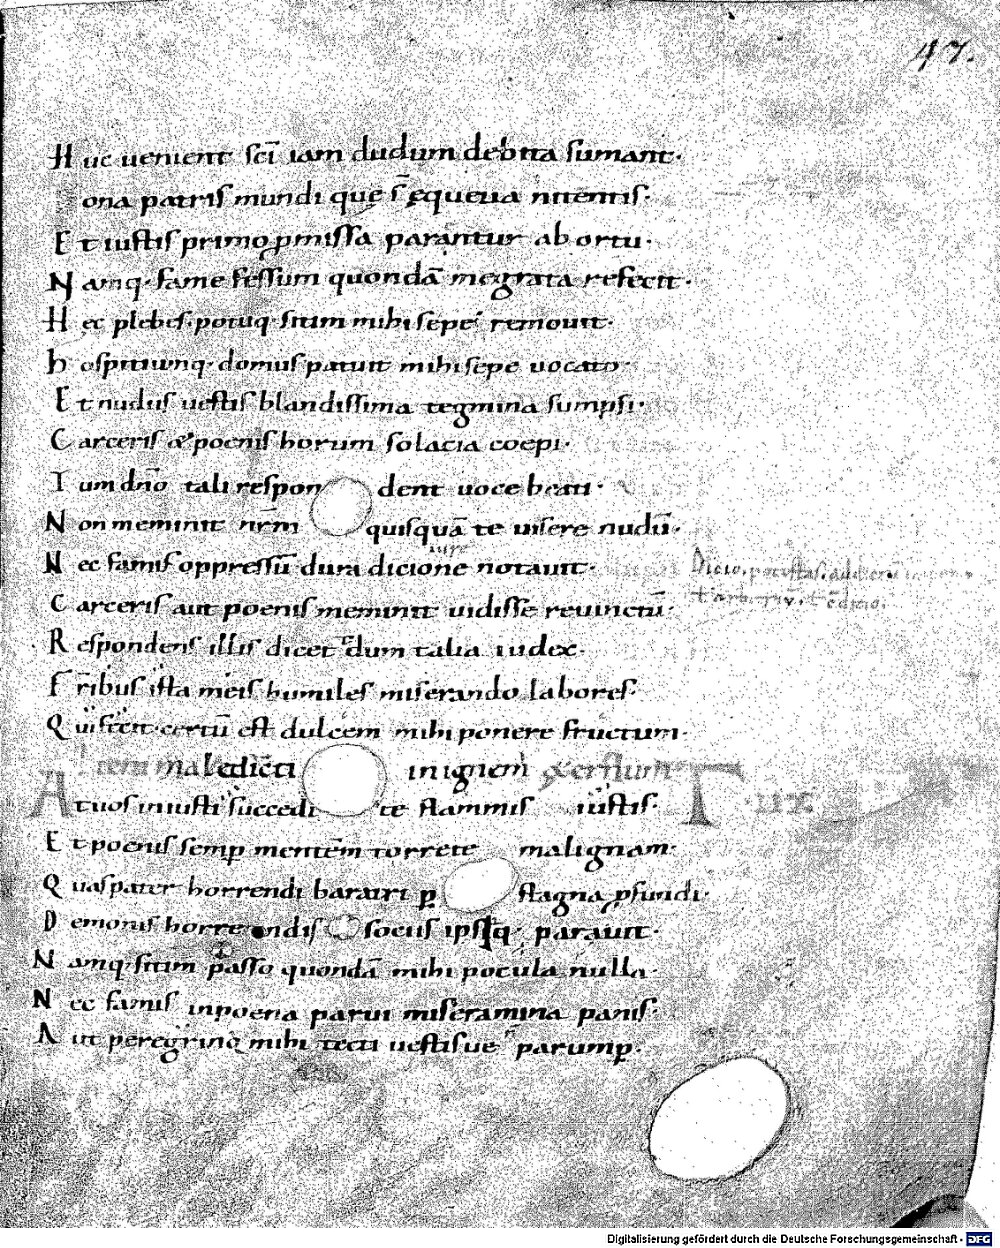 47.
H uc uenient scī iam dudum debita sumant·
ona patris mundi quę s̄ ęqueua nitentis·
E t iustis primo ꝓmissa parantur ab ortu·
N amq· fame fessum quondā me grata refecit·
H ec plebes· potuq· sitim mihi sepe remouit·
h ospitiumq· domus patuit mihi sepe uocato·
E t nudus uestis blandissima tegmina sumpsi·
C arceris & poenis horum solacia coepi·
T um dn̄o tali respondent uoce beati·
N on meminit nr̄m quisquā te uisere nudū·
N ec famis oppressū dura dicione notauit·
Dicio. potestas.
C arceris aut poenis meminit uidisse reuinctū·
R espondens illis dicet dum talia iudex·
F r̄ibus ista meis humiles miserando labores·
Q ui fecit certū est dulcem mihi ponere fructum·
maledicti in ignem
A t uos iniusti succedite flammis iustis·
E t poenis semꝑ mentem torrete malignam·
Q uas pater horrendi baratri ꝑ stagna ꝓfundi·
D emonis horrendis sociis ipsiq· parauit·
N amq· sitim passo quondā mihi pocula nulla·
N ec famis in poena parui miseramina panis·
A ut peregrino mihi tecti uestisue parumꝑ·
Digitalisierung gefördert durch die Deutsche Forschungsgemeinschaft - DFG